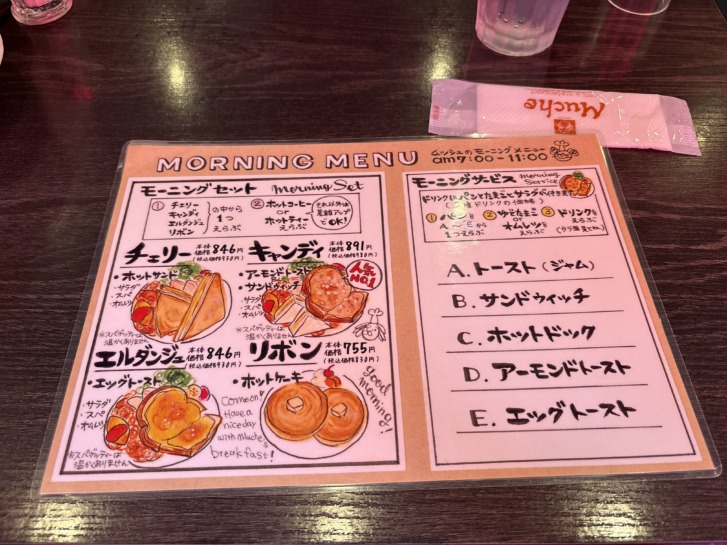 Muche
MORNING MENU
ムッシュのモーニングメニュー
am7:00-11:00
モーニングセット Morning Set
① チェリー
キャンディ
エルダンジュ
リボン
の中から
1つ
えらぶ
② ホットコーヒー
or
ホットティー
えらぶ
それ以外は
差額アップ
でOK!
チェリー 本体価格846円
(税込価格930円)
・ホットサンド
・サラダ
・スパ
・オムレツ
※スパゲッティーは
温かくありません
キャンディ 本体価格891円
(税込価格980円)
・アーモンドトースト
・サンドウィッチ
・サラダ
・スパ
・オムレツ
人気
NO.1
※スパゲッティーは
温かくありません
エルダンジュ 本体価格846円
(税込価格930円)
・エッグトースト
・サラダ
・スパ
・オムレツ
※スパゲッティーは
温かくありません
Come on!
Have a
nice day
with Muche's
breakfast!
リボン 本体価格755円
(税込価格830円)
・ホットケーキ
good
morning!
モーニングサービス Morning Service
ドリンクにパンとたまごとサラダが付きます
ドリンクの価格)
① パンを
A〜Eから
1つえらぶ
② ゆでたまご
or
オムレツを
えらぶ
③ ドリンクを
えらぶ
A. トースト (ジャム)
B. サンドウィッチ
C. ホットドック
D. アーモンドトースト
E. エッグトースト